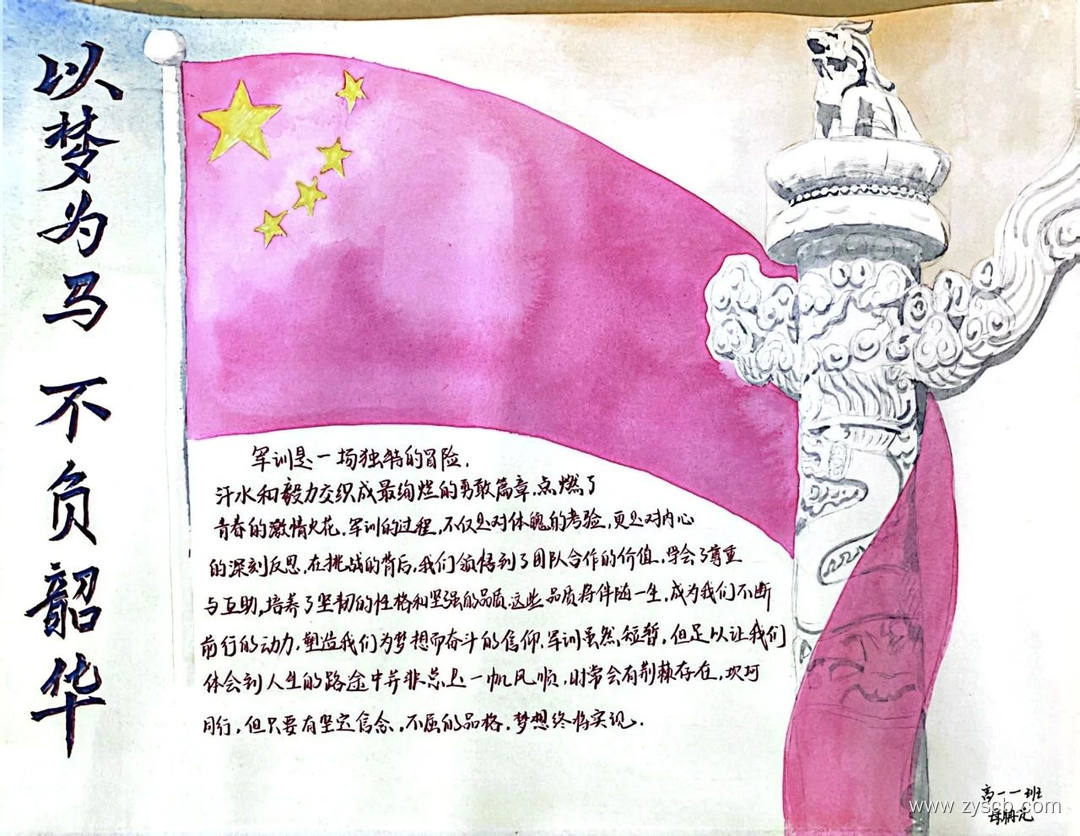 以梦为马 不负韶华
军训是一场独特的冒险,
汗水和毅力交织成最绚烂的勇敢篇章,点燃了
青春的激情火花,军训的过程,不仅是对体魄的考验,更是对内心
的深刻反思,在挑战的背后,我们领悟到了团队合作的价值,学会了尊重
与互助,培养了坚韧的性格和坚强的品质.这些品质将伴随一生,成为我们不断
前行的动力,塑造我们为梦想而奋斗的信仰.军训虽然短暂,但足以让我们
体会到人生的路途中并非总是一帆风顺,时常会有荆棘存在,坎坷
同行,但只要有坚定信念,不屈的品格,梦想终将实现.
高一一班
www.zyscb.com